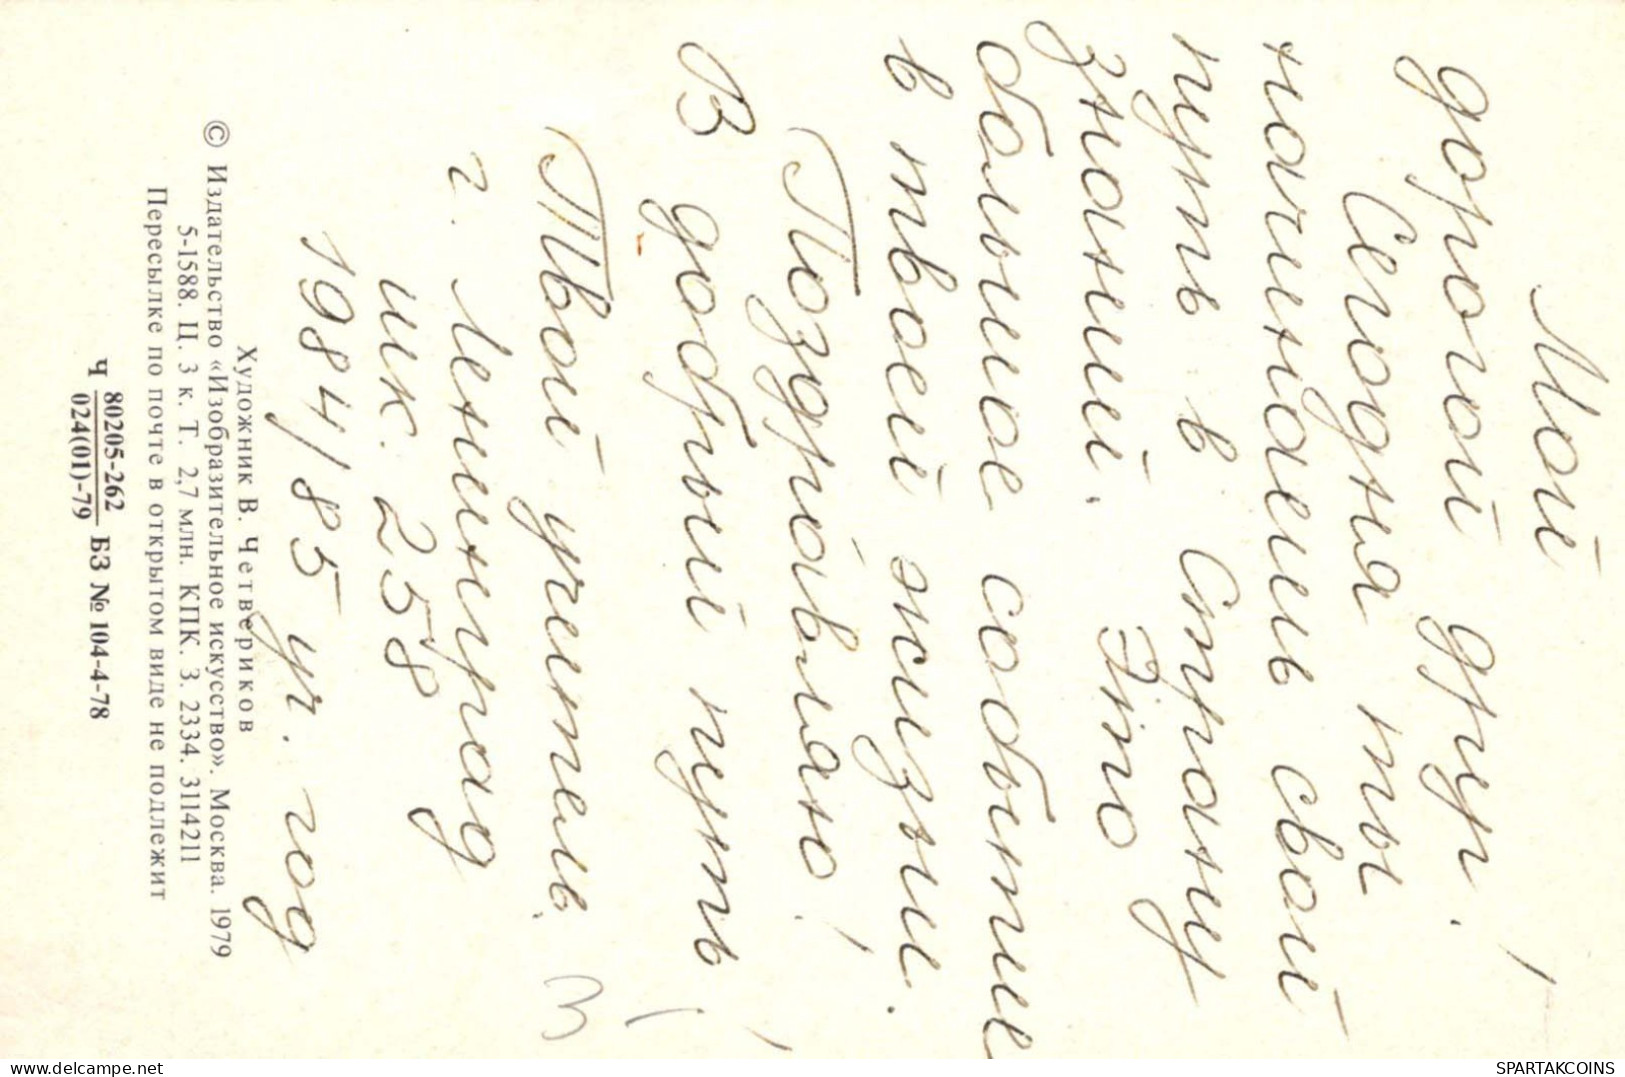 Мой
дорогой друг!
Сегодня ты
начинаешь свой
путь в Страну
знаний. Это
большое событие
в твоей жизни.
Поздравляю!
В добрый путь!
Твой учитель.
г. Ленинград
шк. 258
1984/85 уч. год
Художник В. Четвериков
© Издательство «Изобразительное искусство». Москва. 1979
5-1588. Ц. 3 к. Т. 2,7 млн. КПК. З. 2334. 3114211
Пересылке по почте в открытом виде не подлежит
Ч 80205-262 БЗ № 104-4-78
024(01)-79
www.delcampe.net
SPARTAKCOINS